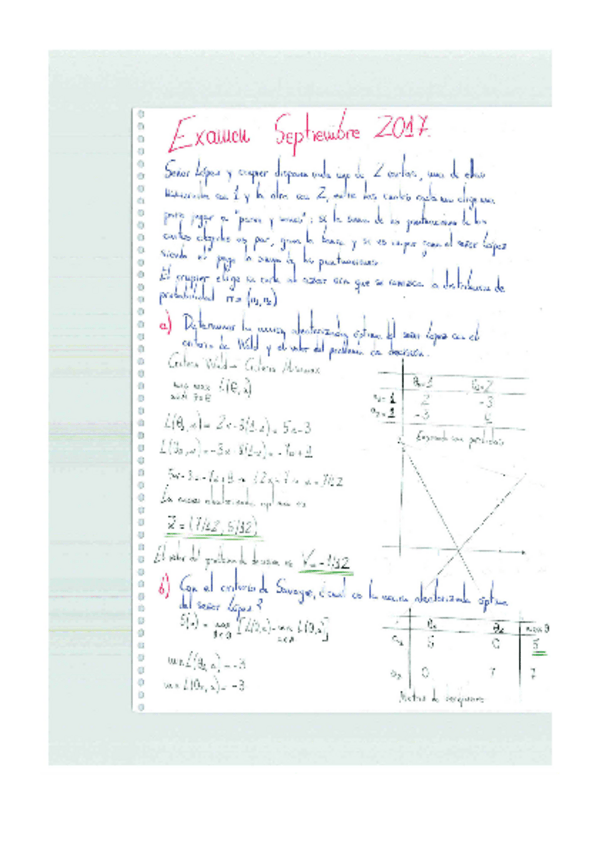 Examen Septiembre 2017.
Señor López y crupier disponen cada uno de 2 cartas, una de ellas
numerada con 1 y la otra con 2, entre las cuales cada uno elige una
para jugar a "pares y nones"; si la suma de las puntuaciones de las
cartas elegidas es par, gana la banca y si es impar gana el señor López
siendo el pago la suma de las puntuaciones
El crupier elige su carta al azar sin que se conozca la distribución de
probabilidad π = (π₁, π₂)
a) Determinar la acción aleatorizada óptima del señor López con el
criterio de Wald y el valor del problema de decisión.
Criterio Wald → Criterio Minimax
min max L(θ,α)
θ₁=1 θ₂=2
a₁=1 2 -3
-3 4
L(θ₁,α) = 2α-3(1-α) = 5α-3
Expresado en pérdidas
5α-3 = -7α+4 → 12α = 7 → α = 7/12
La acción aleatorizada óptima es
Z = (7/12, 5/12)
El valor del problema de decisión es V = -1/12
b) Con el criterio de Savage, ¿cuál es la acción aleatorizada óptima
del señor López?
θ₁ θ₂ max θ
a₁ 5 0 5
a₂ 0 7 7
min L(θ₁,a) = -3
min L(θ₂,a) = -3
Matriz de